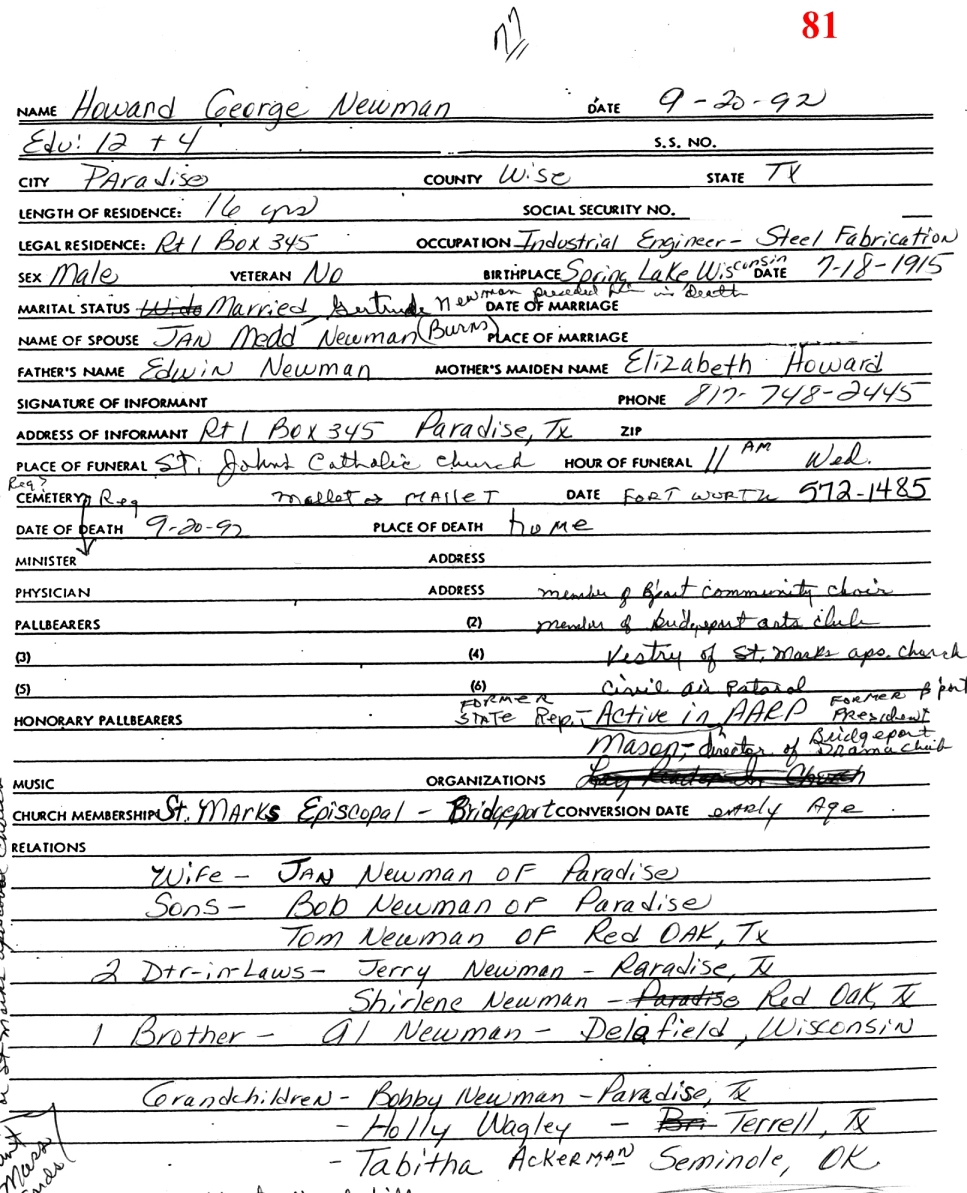 77
81
NAME Howard George Newman DATE 9-20-92
Edu: 12 + 4 S.S. NO.
CITY Paradise COUNTY Wise STATE TX
LENGTH OF RESIDENCE: 16 yrs SOCIAL SECURITY NO.
LEGAL RESIDENCE: Rt 1 Box 345 OCCUPATION Industrial Engineer - Steel Fabrication
SEX Male VETERAN No BIRTHPLACE Spring Lake Wisconsin DATE 7-18-1915
MARITAL STATUS Wido Married, Gertrude Newman preceded him in Death DATE OF MARRIAGE
NAME OF SPOUSE JAN Medd Newman (Burns) PLACE OF MARRIAGE
FATHER'S NAME Edwin Newman MOTHER'S MAIDEN NAME Elizabeth Howard
SIGNATURE OF INFORMANT PHONE 817-748-2445
ADDRESS OF INFORMANT Rt 1 Box 345 Paradise, Tx ZIP
PLACE OF FUNERAL St. Johns Catholic Church HOUR OF FUNERAL 11 AM Wed.
Req?
CEMETERY Req Mallet & MALLET DATE FORT WORTH 572-1485
DATE OF DEATH 9-20-92 PLACE OF DEATH home
MINISTER ADDRESS
PHYSICIAN ADDRESS member of Bport Community choir
PALLBEARERS (2) member of Bridgeport arts club
(3) (4) Vestry of St. Marks eps. church
(5) (6) Civil air Patarol
HONORARY PALLBEARERS FORMER STATE Rep. - Active in AARP FORMER B'port President
Mason - director of Bridgeport Drama Club
MUSIC ORGANIZATIONS Church
CHURCH MEMBERSHIP St. MARKS Episcopal - Bridgeport CONVERSION DATE early Age
RELATIONS
Wife - JAN Newman OF Paradise
Sons - Bob Newman OF Paradise
Tom Newman OF Red OAK, Tx
2 Dtr-in-Laws - Jerry Newman - Paradise, Tx
Shirlene Newman - Paradise Red Oak, Tx
1 Brother - Al Newman - Delafield, Wisconsin
Grandchildren - Bobby Newman - Paradise, Tx
- Holly Wagley - Bri Terrell, Tx
- Tabitha ACKERMAN Seminole, OK.
or St Marks Episcopal Church
Mass